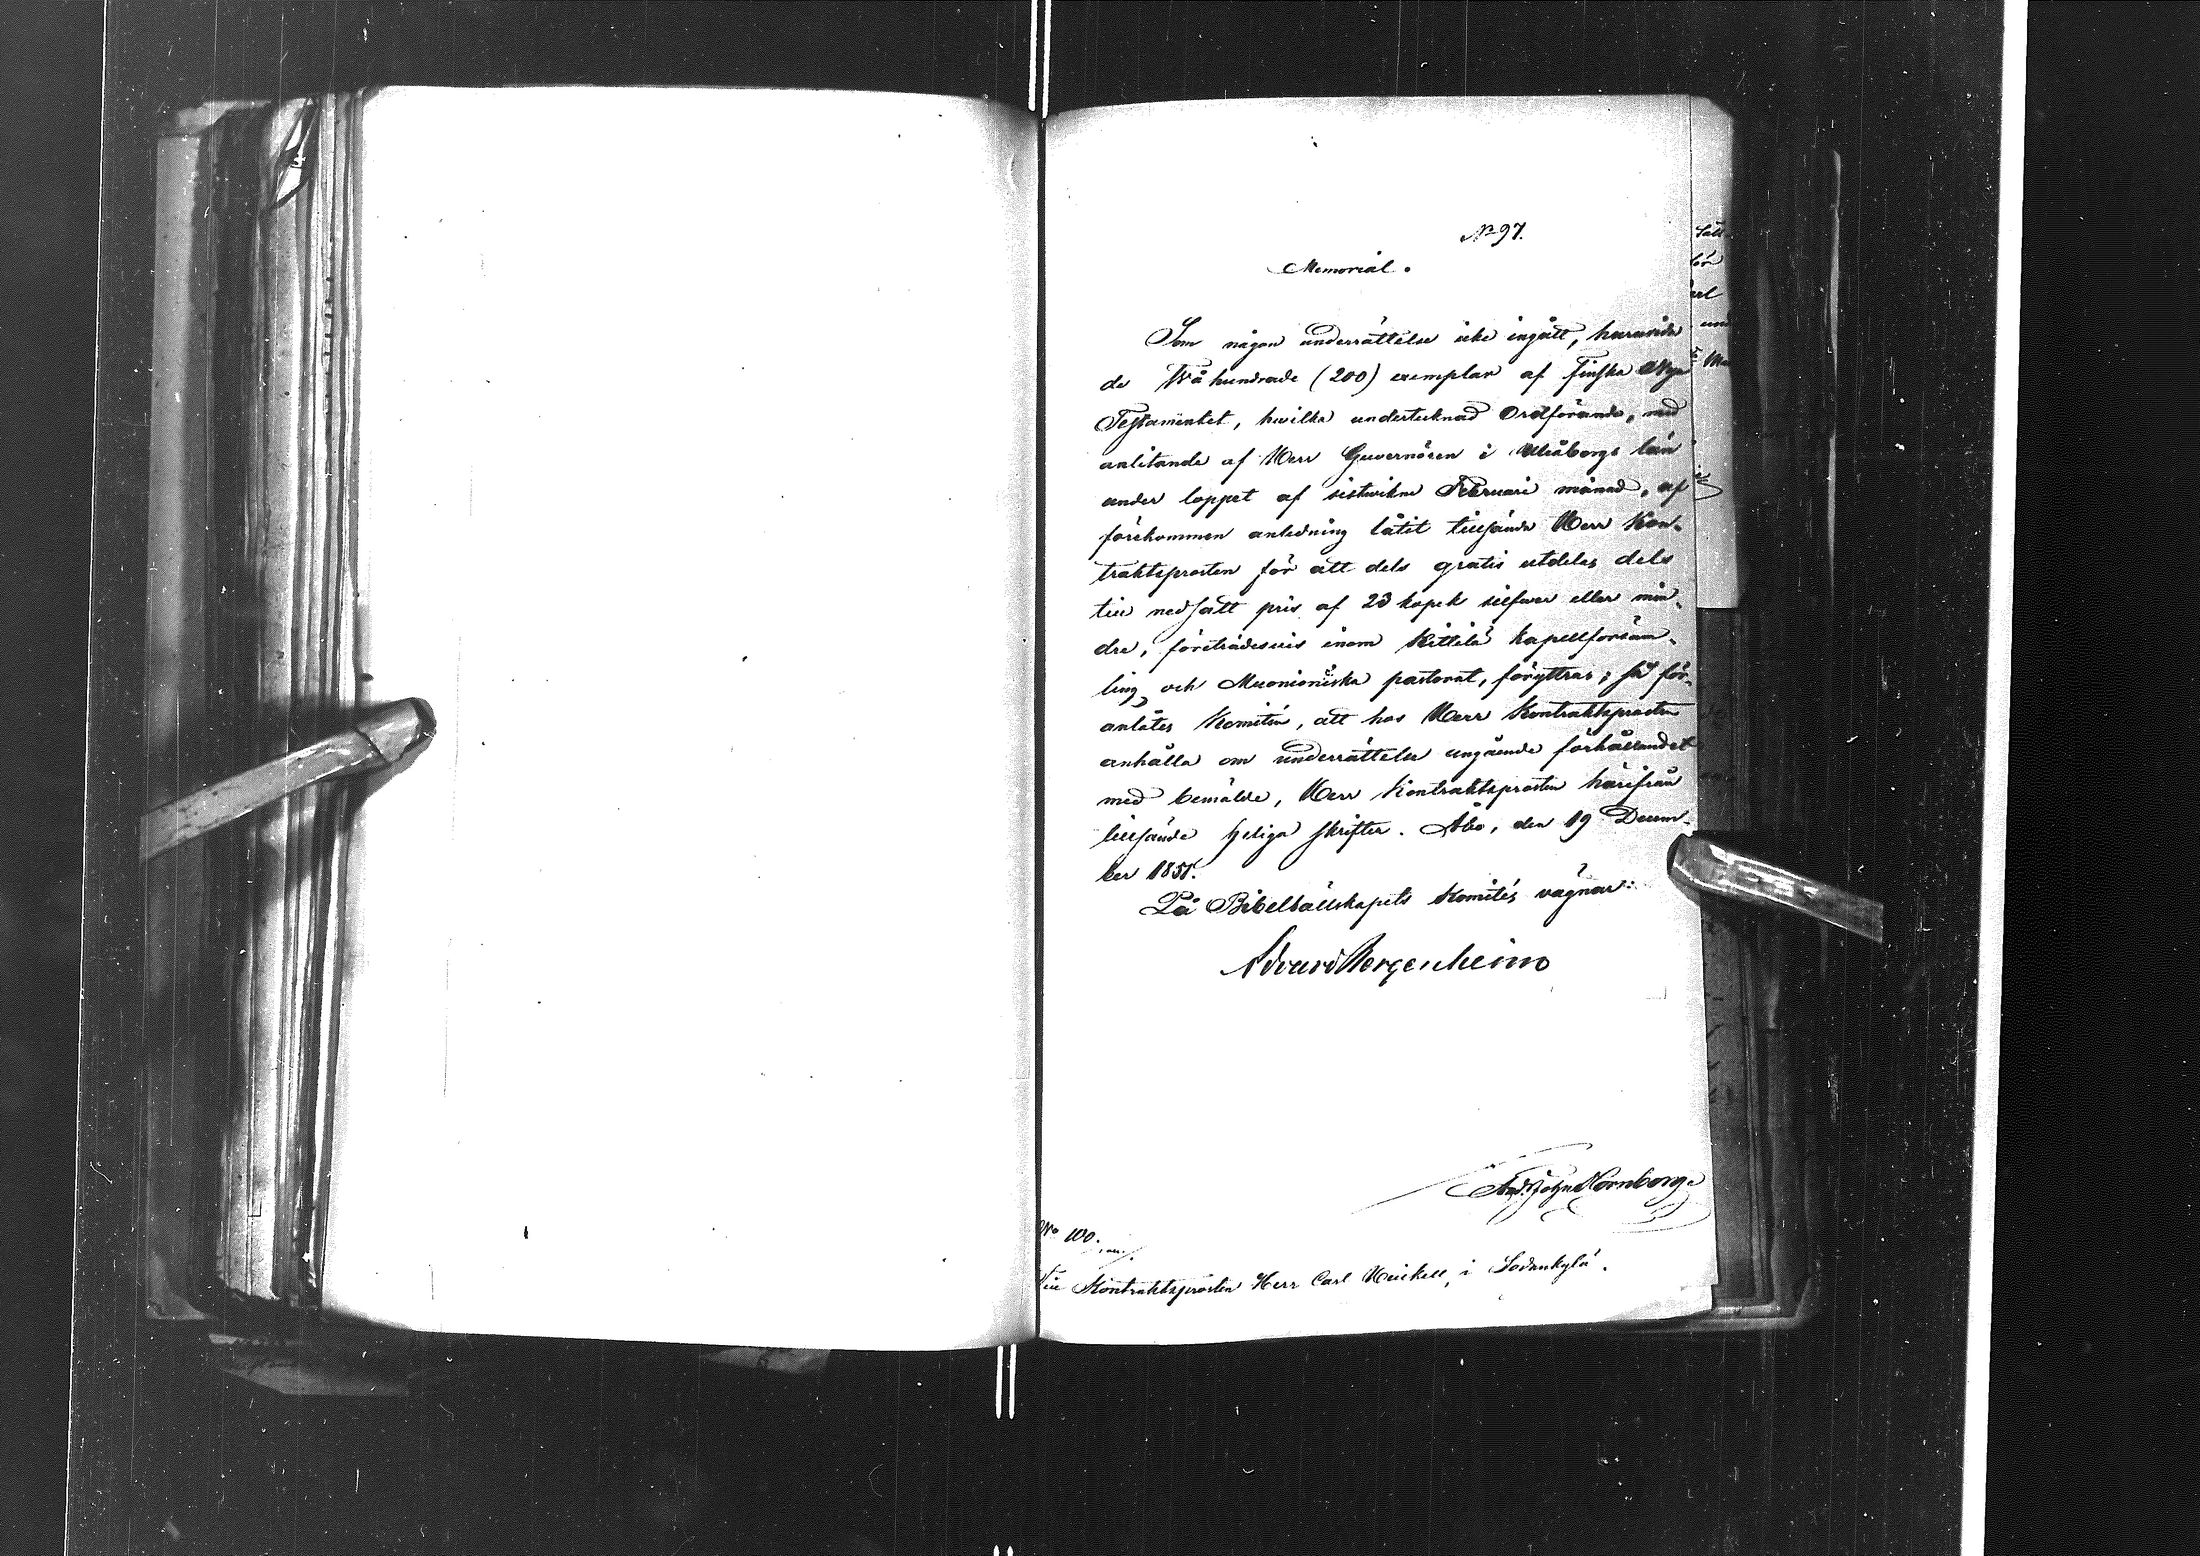 No 97.
Memorial.
Som någon underrättelse icke ingått, huruvida
de Två hundrade (200) exemplar af Finska Nya
Testamentet, hwilka undertecknad Ordförande, med
anlitande af Herr Guvernören i Uleåborgs län
under loppet af sistwikne Februari månad, af
förekommen anledning låtit tillsända Herr Kon-
traktsprosten för att dels gratis utdelas dels
till nedsatt pris af 23 kopek silfwer eller min-
dre, företrädesvis inom Kittilä kapellförsam-
ling och Muonioniska pastorat, föryttras; så för-
anlåtes Komitén, att hos Herr Kontraktsprosten
anhålla om underrättelse angående förhållandet
med bemälde, Herr Kontraktsprosten härifrån
tillsände heliga skrifter. Åbo, den 19 Decem-
ber 1851.
På Bibelsällskapets Komités vägnar:
Edvard Bergenheim
Joh Hornborg
No 100.
Till Kontraktsprosten Herr Carl Heickell, i Sodankylä.